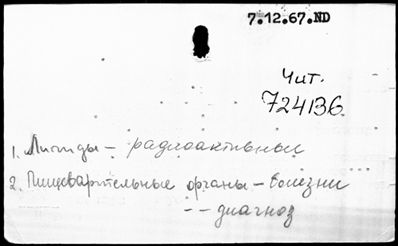 7.12.67.ND
Чит.
724136.
1. Липиды – радиоактивные
2. Пищеварительные органы – болезни
-- диагноз